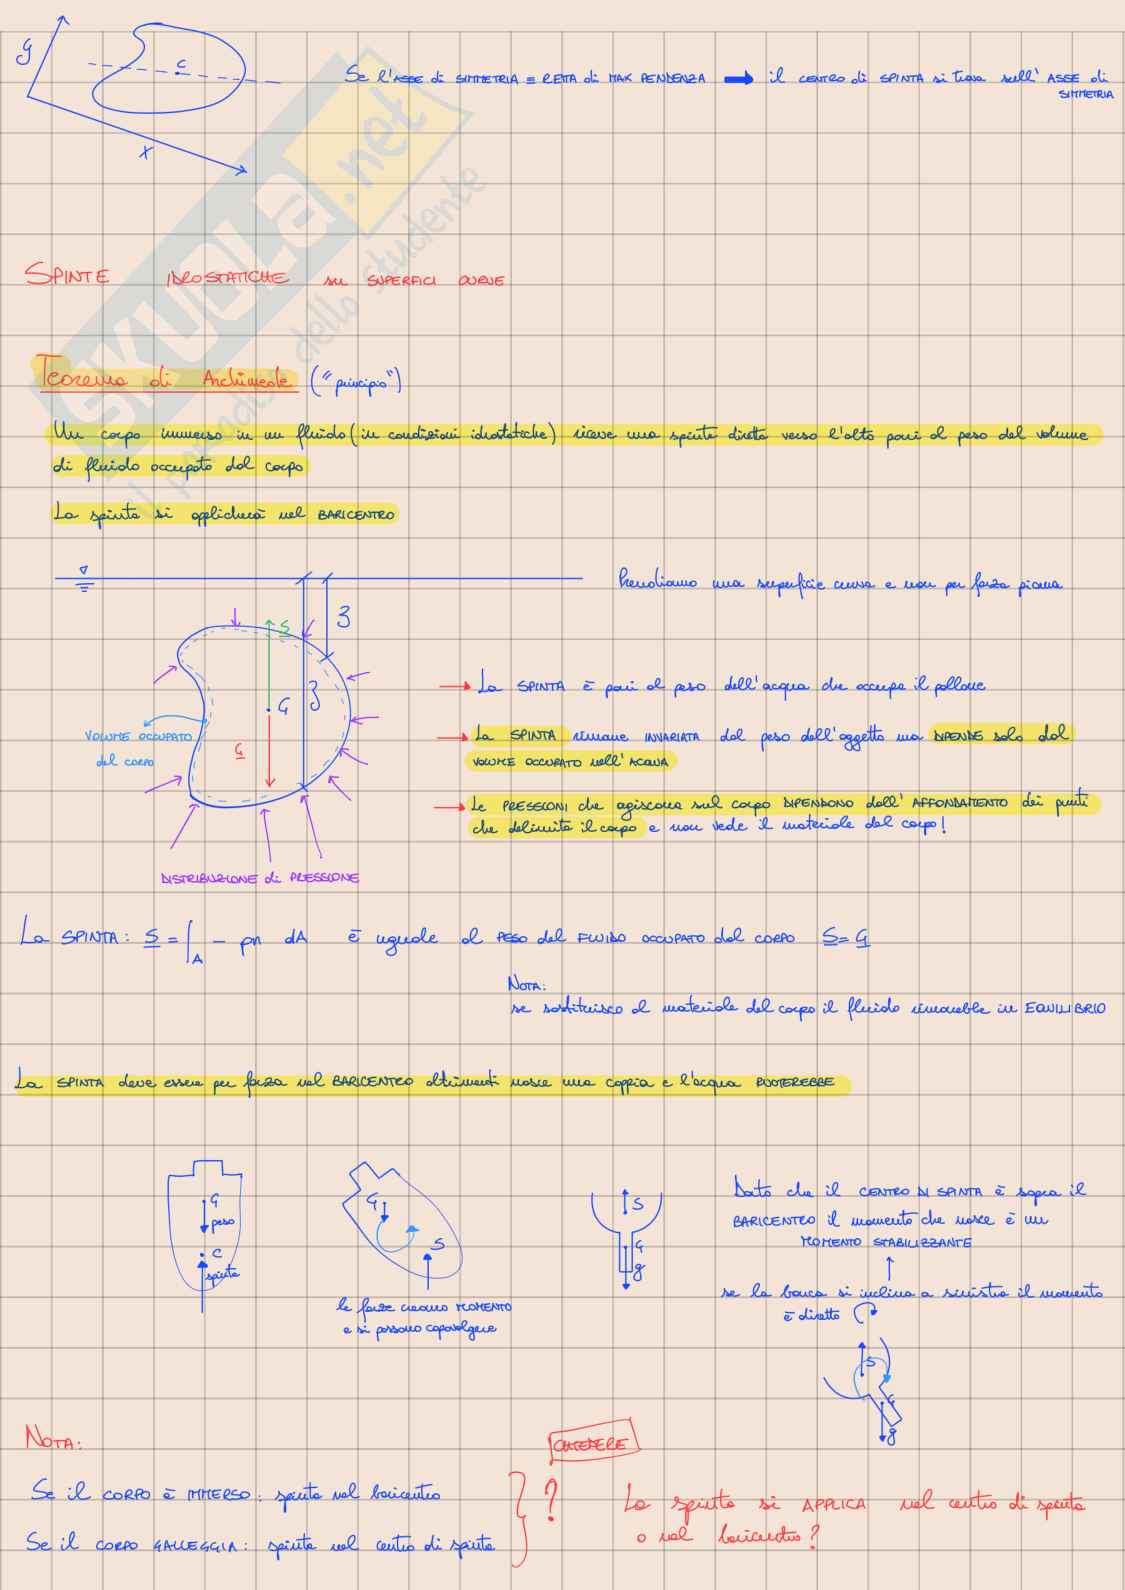 y
c
x
Se l'ASSE di SIMMETRIA ≡ RETTA di MAX PENDENZA → il CENTRO di SPINTA si trova sull' ASSE di
SIMMETRIA
SKUOLA.net
il paradiso dello studente
SPINTE IDROSTATICHE su SUPERFICI CURVE
Teorema di Archimede ("principio")
Un corpo immerso in un fluido (in condizioni idrostatiche) riceve una spinta diretta verso l'alto pari al peso del volume
di fluido occupato dal corpo
La spinta si applicherà nel BARICENTRO
Prendiamo una superficie curva e non per forza piana
S
G
G
VOLUME OCCUPATO
dal corpo
→ La SPINTA è pari al peso dell'acqua che occupa il pallone
→ La SPINTA rimane INVARIATA dal peso dell'oggetto ma DIPENDE solo dal
VOLUME OCCUPATO nell'ACQUA
→ Le PRESSIONI che agiscono sul corpo DIPENDONO dall'AFFONDAMENTO dei punti
che delimita il corpo e non vede il materiale del corpo!
DISTRIBUZIONE di PRESSIONE
La SPINTA: S = ∫A - pn dA è uguale al PESO del FLUIDO OCCUPATO dal CORPO S = G
NOTA:
se sostituisco al materiale del corpo il fluido rimarrebbe in EQUILIBRIO
La SPINTA deve essere per forza nel BARICENTRO altrimenti nasce una coppia e l'acqua RUOTEREBBE
G
peso
C
spinta
G
S
le forze creano MOMENTO
e si possono capovolgere
S
G
g
Dato che il CENTRO DI SPINTA è sopra il
BARICENTRO il momento che nasce è un
MOMENTO STABILIZZANTE
se la barca si inclina a sinistra il momento
è diretto
S
G
g
NOTA:
CHIEDERE
Se il CORPO È IMMERSO: spinta nel baricentro
Se il CORPO GALLEGGIA: spinta nel centro di spinta
?
La spinta si APPLICA nel centro di spinta
o nel baricentro?